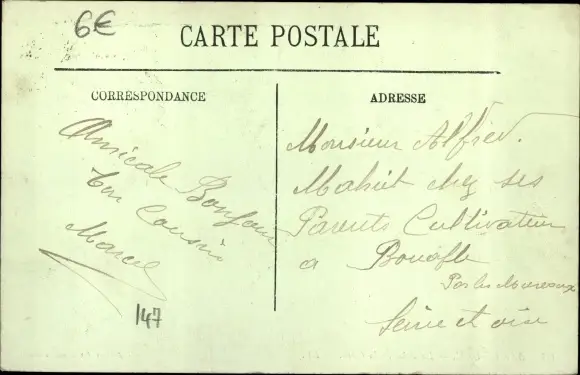 6€
CARTE POSTALE
CORRESPONDANCE
Amicale Bonjour
ton Cousin
Marcel
147
ADRESSE
Monsieur Alfred.
Mahiet chez ses
Parents Cultivateur
a Bouafle
Par les Mureaux
Seine et oise